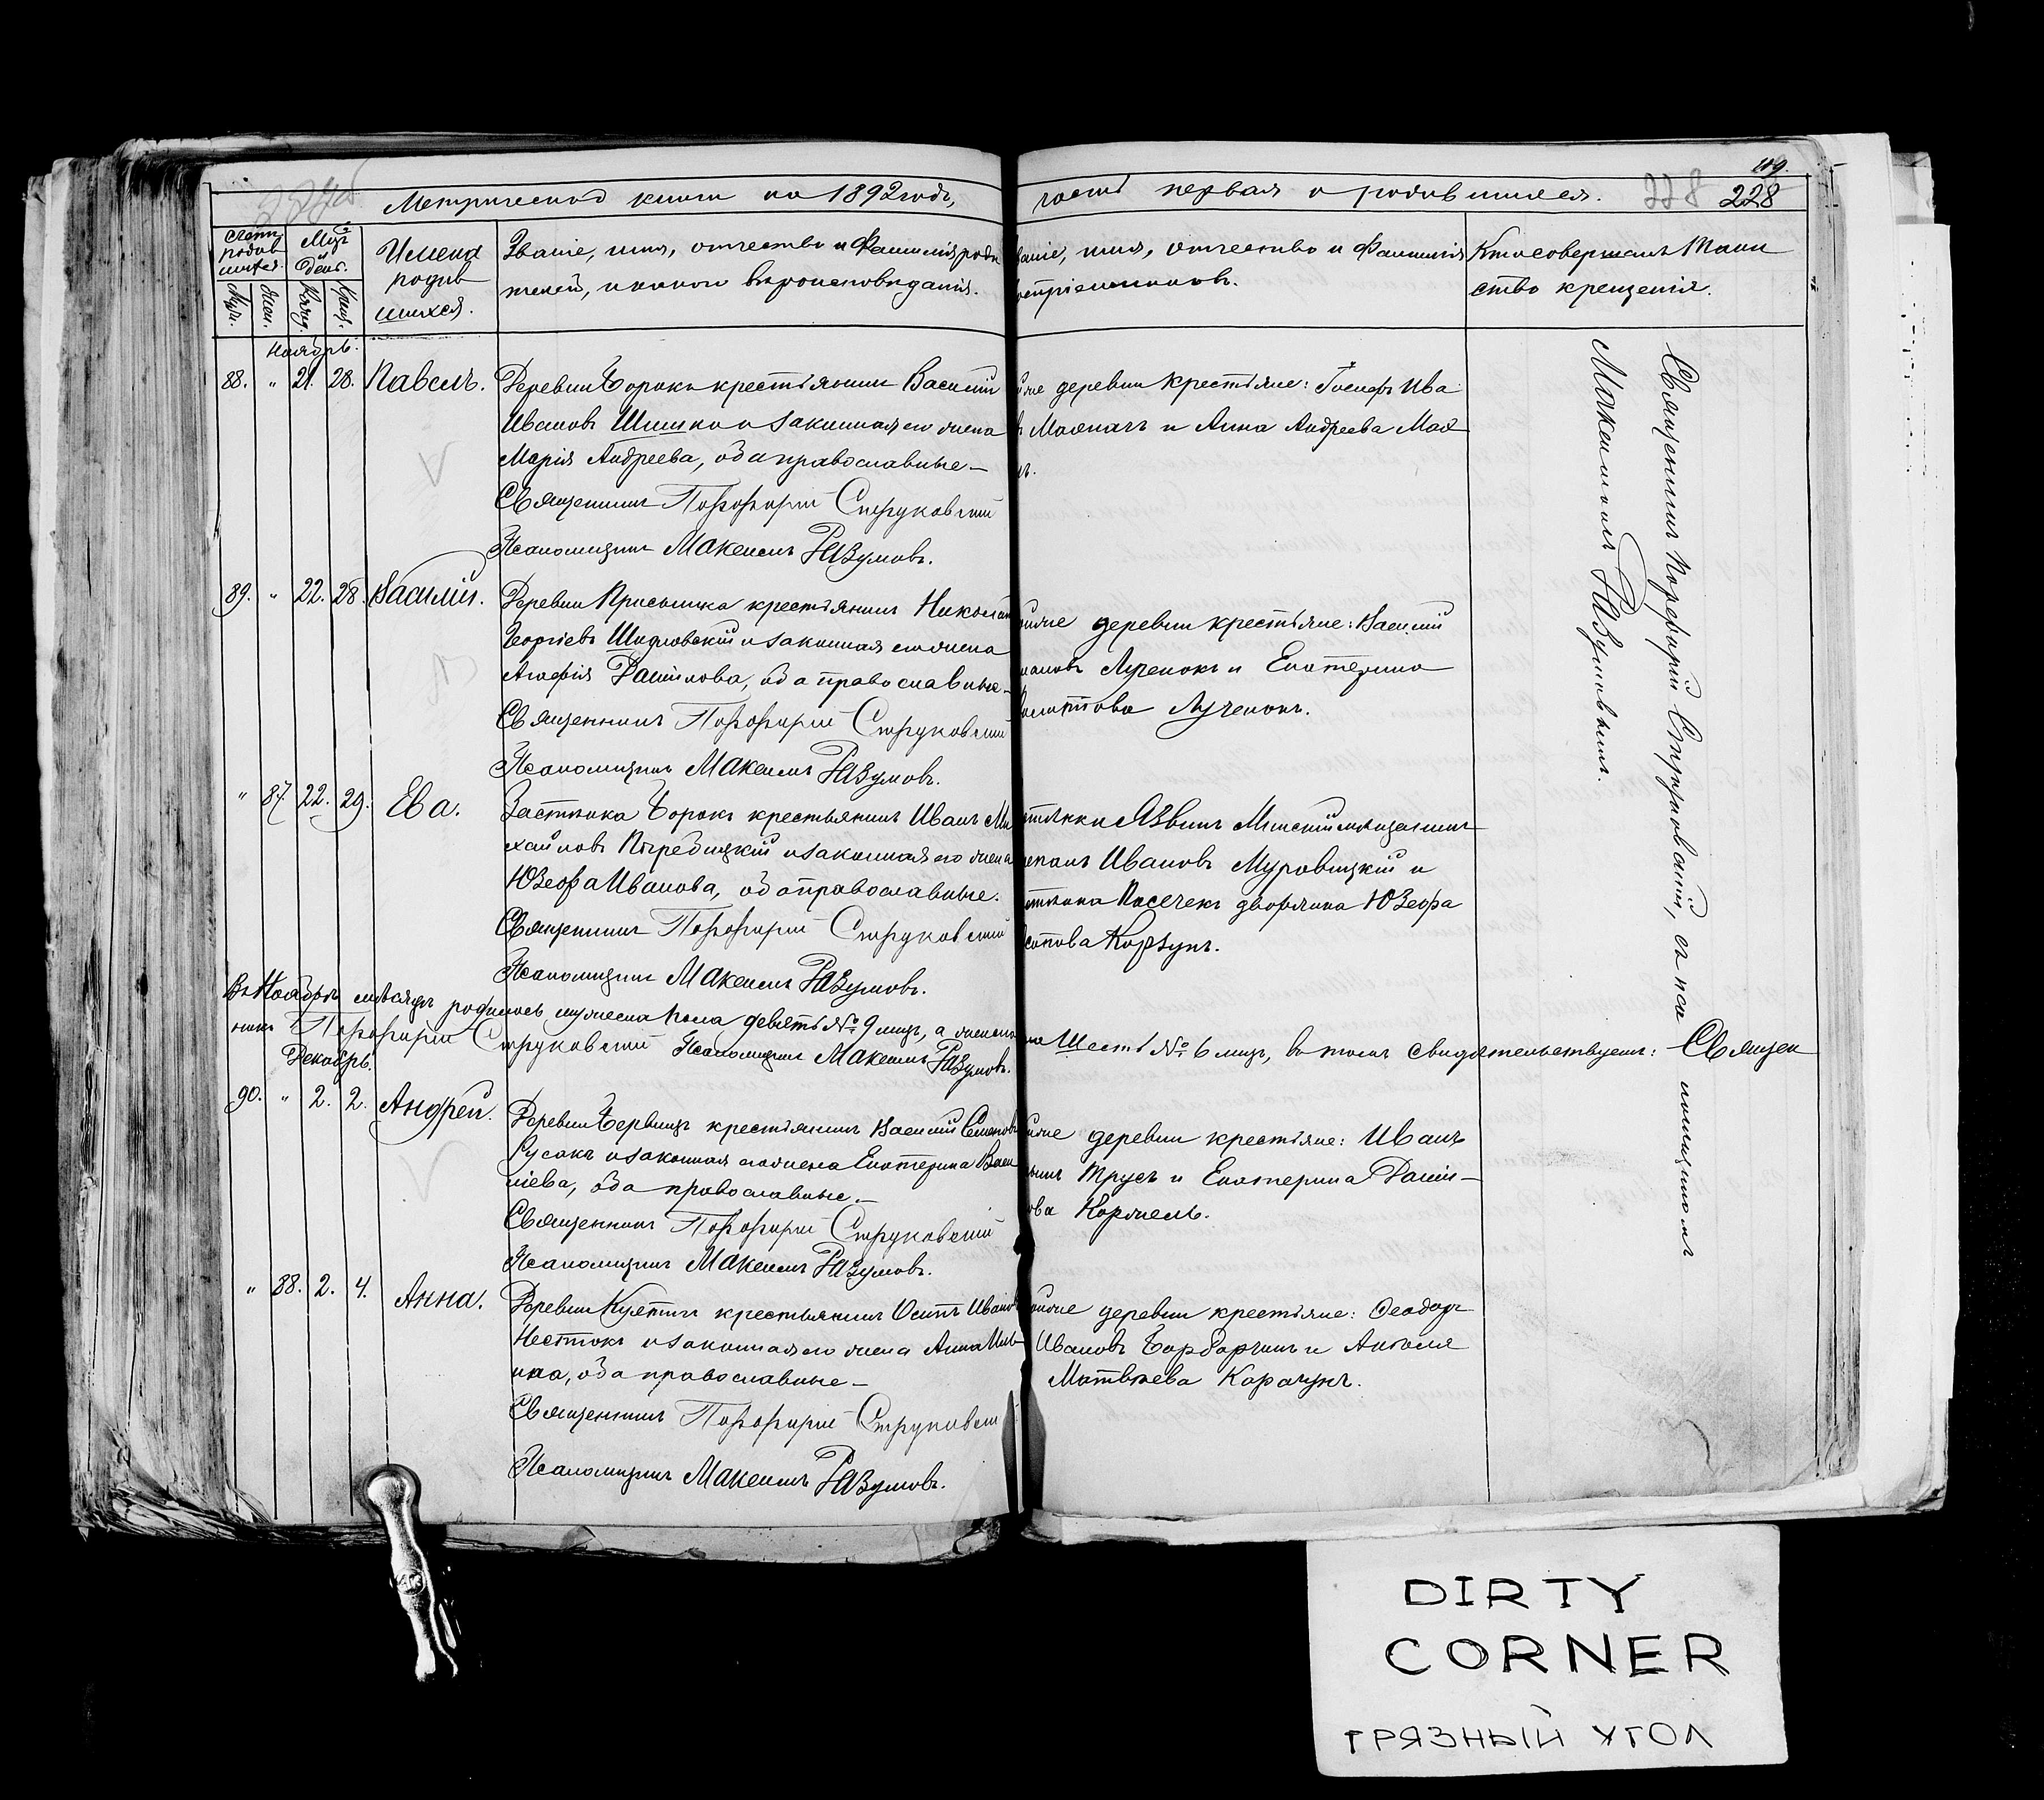 119.
Метрической книги на 1892 годъ,
часть первая о родившихся. 228 228
Счетъ родив шихся.
Муж. Жен.
Мцъ и день.
Рожд. Крещ.
Имена родив шихся.
Званіе, имя, отчество и фамилія роди
телей, и какого вѣроисповѣданія.
ваніе, имя, отчество и фамилія
воспріемниковъ.
Кто совершалъ Таин
ство крещенія.
Ноябрь.
88. " 21. 28. Павелъ.
Деревни Борокъ крестьянинъ Василій
Ивановъ Шишко и законная его жена
Марія Андреева, оба православные —
Священникъ Порфирій Струковскій
Псаломщикъ Максимъ Разумовъ.
деревни крестьяне: Іосифъ Ива
въ Малахъ и Анна Андреева Мал
89. " 22. 28. Василій.
Деревни Присынка крестьянинъ Николай
Георгіевъ Шидловскій и законная его жена
Агафія Данилова, оба православные —
Священникъ Порфирій Струковскій
Псаломщикъ Максимъ Разумовъ.
деревни крестьяне: Василій
Лученокъ и Екатерина
Лученокъ.
" 87. 22. 29. Ева.
Застѣнка Борокъ крестьянинъ Иванъ Ми
хайловъ Погребицкій и законная его жена
Юзефа Иванова, оба православные.
Священникъ Порфирій Струковскій
Псаломщикъ Максимъ Разумовъ.
стѣнки Язвинъ Минскій мѣщанинъ
Ивановъ Муровицкій и
стѣнка Пасечекъ дворянка Юзефа
Корзунъ.
Въ Ноябрѣ мѣсяцѣ родилось мужеска пола девять № 9 мцъ, а женска
на Шесть № 6 мцъ, въ томъ свидѣтельствуемъ: Священ
никъ Порфирій Струковскій Псаломщикъ Максимъ Разумовъ.
Декабрь.
90. " 2. 2. Андрей.
Деревни Червищъ крестьянинъ Василій Семеновъ
Русакъ и законная его жена Екатерина Васи
ліева, оба православные. —
Священникъ Порфирій Струковскій
Псаломщикъ Максимъ Разумовъ.
деревни крестьяне: Иванъ
Трусъ и Екатерина Данил—
ова Кормель.
" 88. 2. 4. Анна.
Деревни Куптичи крестьянинъ Осипъ Ивановъ
Нестюкъ и законная его жена Анна Иль
ина, оба православные —
Священникъ Порфирій Струковскій
Псаломщикъ Максимъ Разумовъ.
деревни крестьяне: Ѳеодоръ
Ивановъ Барбарчикъ и Анголя
Матвѣева Карачунъ.
Священникъ Порфирій Струковскій, съ псаломщикомъ
Максимомъ Разумовымъ.
DIRTY
CORNER
ГРЯЗНЫЙ УГОЛ